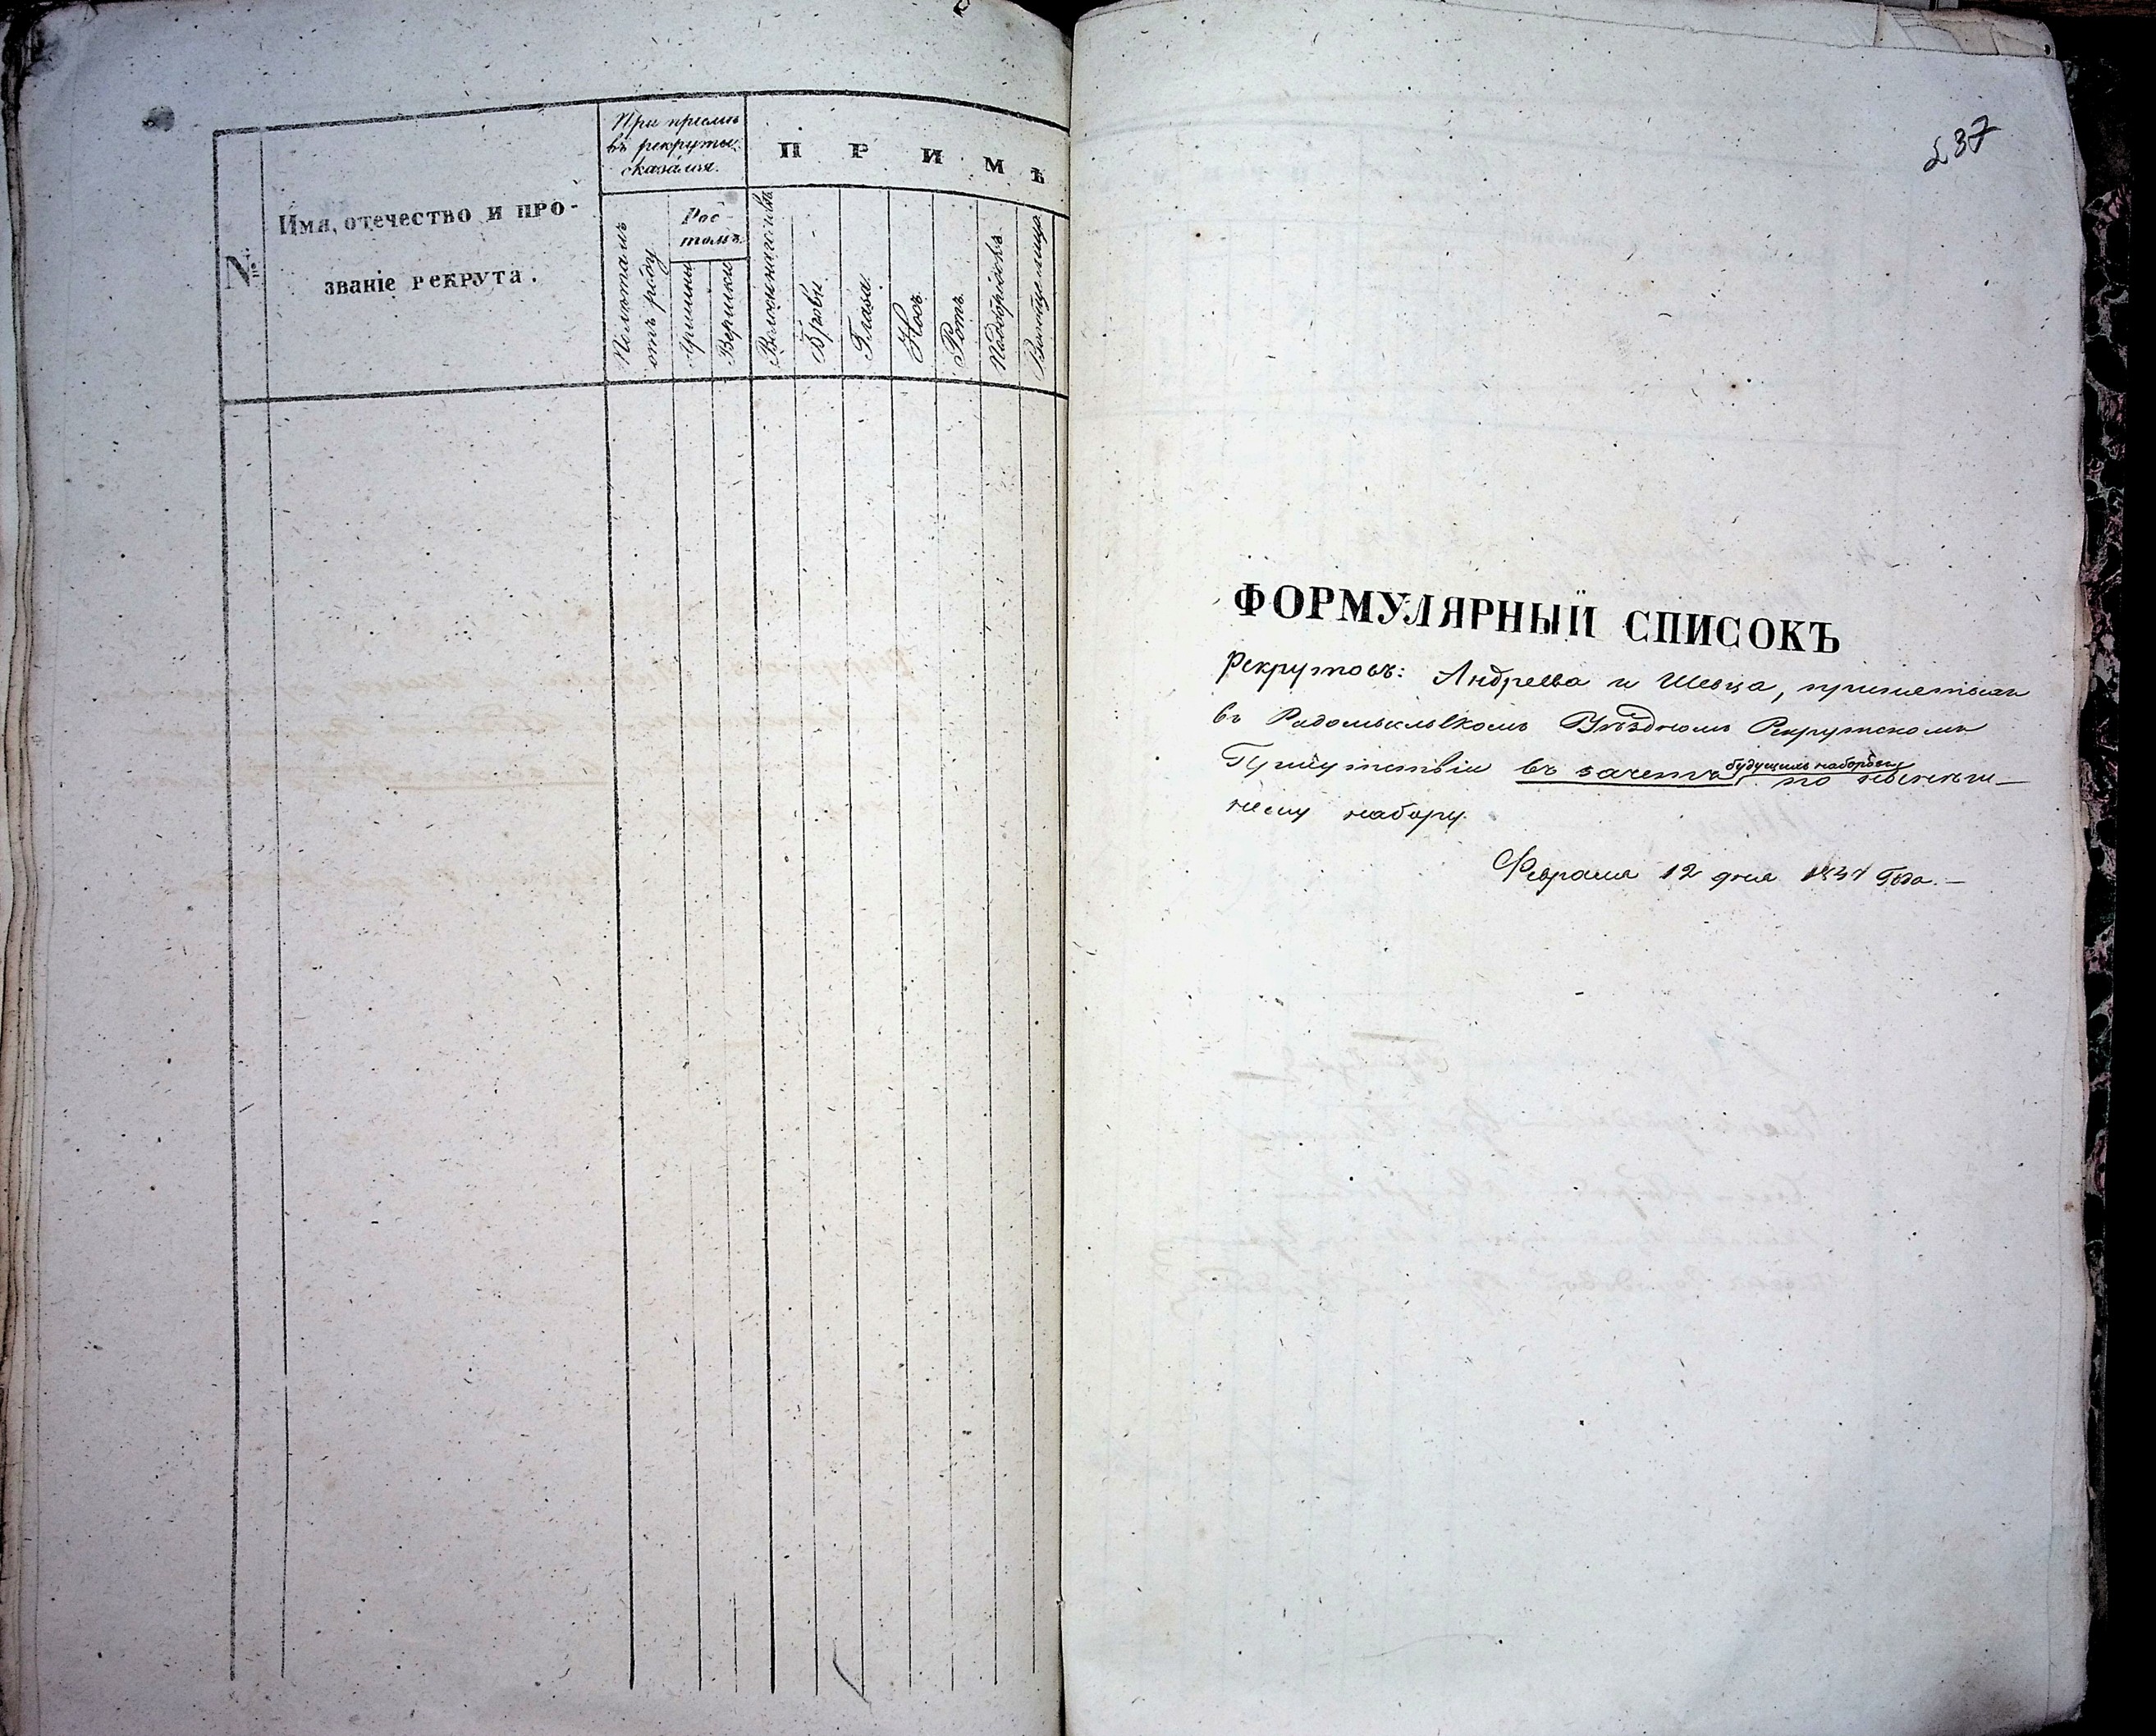 №
Имя, отечество и про-
званіе рекрута.
При пріемѣ
въ рекруты
оказался.
Пол.лѣтамъ
отъ роду
Рос-
томъ.
Аршины
Вершки
П Р И М Ѣ
Волосы на головѣ
Брови
Глаза.
Носъ.
Ротъ.
Подбородокъ
Вообще лице
237
ФОРМУЛЯРНЫЙ СПИСОКЪ
Рекрутовъ: Андреева и Шевца, принятыхъ
въ Радомысльскомъ Уѣздномъ Рекрутскомъ
будущихъ наборовъ
Присутствіи въ зачетъ по нынѣш-
нему набору.
Февраля 12 дня 1831 Года.—